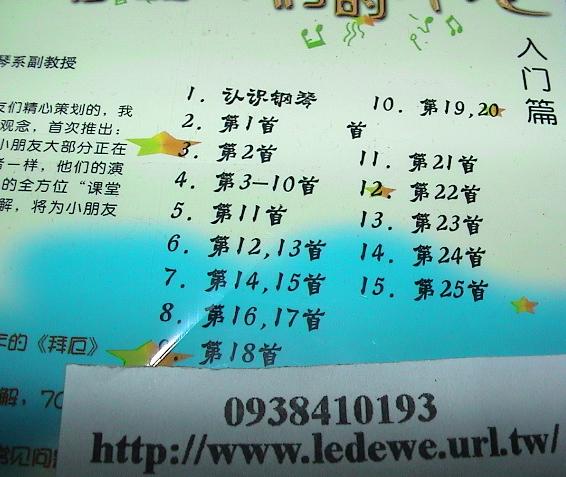 入门篇
琴系副教授
友们精心策划的，我
观念，首次推出：
小朋友大部分正在
者一样，他们的演
的全方位“课堂
解，将为小朋友
1. 认识钢琴
2. 第1首
3. 第2首
4. 第3—10首
5. 第11首
6. 第12,13首
7. 第14,15首
8. 第16,17首
9. 第18首
10. 第19,20
首
11. 第21首
12. 第22首
13. 第23首
14. 第24首
15. 第25首
年的《拜厄》
解，70
常见问
0938410193
http://www.ledewe.url.tw/